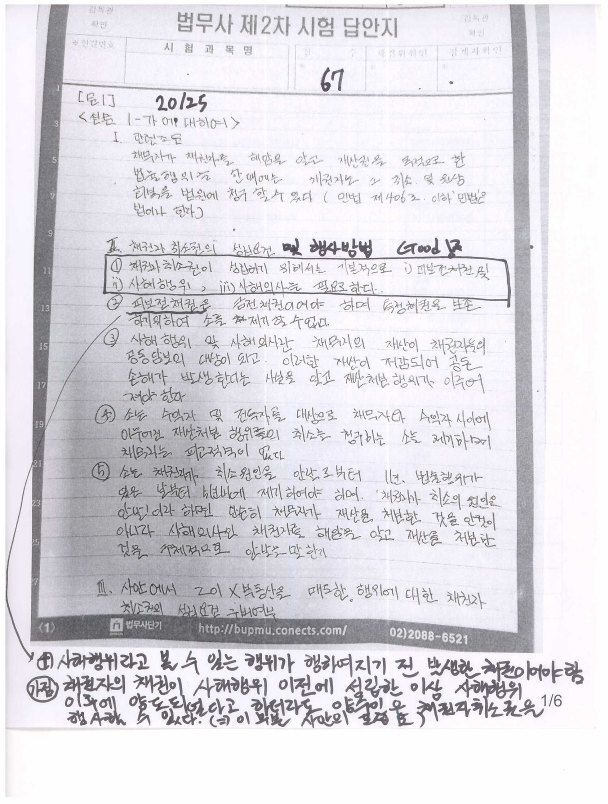 감독관
확인
법무사 제2차 시험 답안지
감독관
확인
※ 수험번호
시 험 과 목 명
점 수
채점위원인
심계자확인
67
[문1] 20/25
<설문 1-가에 대하여>
I. 관련조문
채무자가 채권자를 해함을 알고 재산권을 목적으로 한
법률행위를 한 때에는 채권자는 그 취소 및 원상
회복을 법원에 청구할 수 있다 (민법 제406조. 이하 '민법'은
법이라 한다)
II. 채권자 취소권의 성립요건 및 행사방법 Good
① 채권자취소권이 성립하기 위해서는 기본적으로 i) 피보전채권 및
ii) 사해행위, iii) 사해의사를 필요로 한다.
② 피보전채권은 금전채권이어야 하며 특정채권을 보전
하기 위하여 소를 제기할 수 없다
③ 사해행위 및 사해의사란 채무자의 재산이 채권자들의
공동담보의 대상이 되고 이러한 재산이 저감되어 공동
손해가 발생한다는 사실을 알고 재산처분행위가 이루어
져야 한다
④ 소는 수익자 및 전득자를 대상으로 채무자와 수익자 사이에
이루어진 재산처분 행위들의 취소를 청구하는 소를 제기하며
채무자는 피고적격이 없다
⑤ 소는 채권자가 취소원인을 안 날로부터 1년, 법률행위가
있은 날부터 5년내에 제기하여야 하며, '채권자 취소의 원인을
안 날'이라 하면 단순히 채무자가 재산을 처분한 것을 안 것이
아니라 사해의사로 채권자를 해함을 알고 재산을 처분한
것을 구체적으로 안 날을 말한다
III. 사안에서 乙이 X부동산을 매도한 행위에 대한 채권자
취소권의 성립요건 구비여부
<1> 법무사단기 http://bupmu.conects.com/ 02)2088-6521
⊕ 사해행위라고 볼 수 있는 행위가 행하여지기 전 발생한 채권이어야 함
가점 채권자의 채권이 사해행위 이전에 성립한 이상 사해행위
이후에 양도되었다고 하더라도 양수인은 채권자취소권을
행사할 수 있다.
1/6